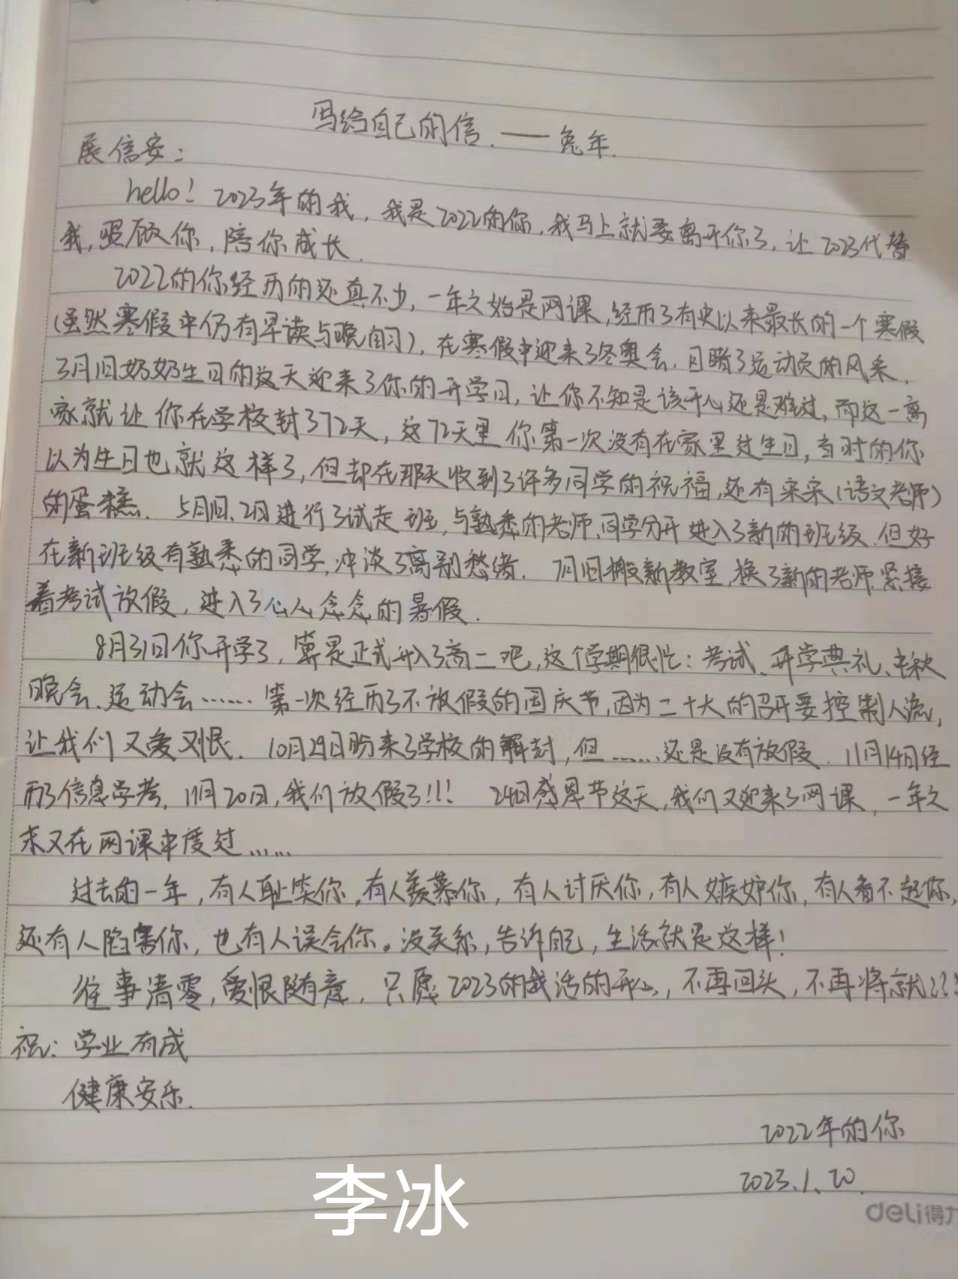 写给自己的信.——兔年.
展信安:
hello! 2023年的我,我是2022的你,我马上就要离开你了,让2023代替
我,照顾你,陪你成长.
2022的你经历的还真不少,一年之始是网课,经历了有史以来最长的一个寒假
(虽然寒假中仍有早读与晚自习),在寒假中迎来了冬奥会,目睹了运动员的风采.
3月1日奶奶生日的这天迎来了你的开学日,让你不知是该开心还是难过,而这一离
家就让你在学校封了72天,这72天里你第一次没有在家里过生日,当时的你
以为生日也就这样了,但却在那天收到了许多同学的祝福,还有采采(语文老师)
的蛋糕. 5月1日、2日进行了试走班,与熟悉的老师、同学分开进入了新的班级.但好
在新班级有熟悉的同学,冲淡了离别愁绪. 7月1日搬新教室,换了新的老师.紧接
着考试放假,进入了心心念念的暑假.
8月31日你开学了,算是正式升入了高二吧,这个学期很忙:考试、开学典礼、中秋
晚会、运动会……第一次经历了不放假的国庆节,因为二十大的召开要控制人流,
让我们又爱又恨. 10月29日盼来了学校的解封,但……还是没有放假. 11月14日经
历了信息学考,11月20日,我们放假了!!! 24日感恩节这天,我们又迎来了网课,一年之
末又在网课中度过……
过去的一年,有人耻笑你,有人羡慕你,有人讨厌你,有人嫉妒你,有人看不起你,
还有人陷害你,也有人误会你。没关系,告诉自己,生活就是这样!
往事清零,爱恨随意,只愿2023的我活的开心,不再回头,不再将就!!!
祝:学业有成
健康安乐.
2022年的你
2023.1.20.
李冰
deli得力